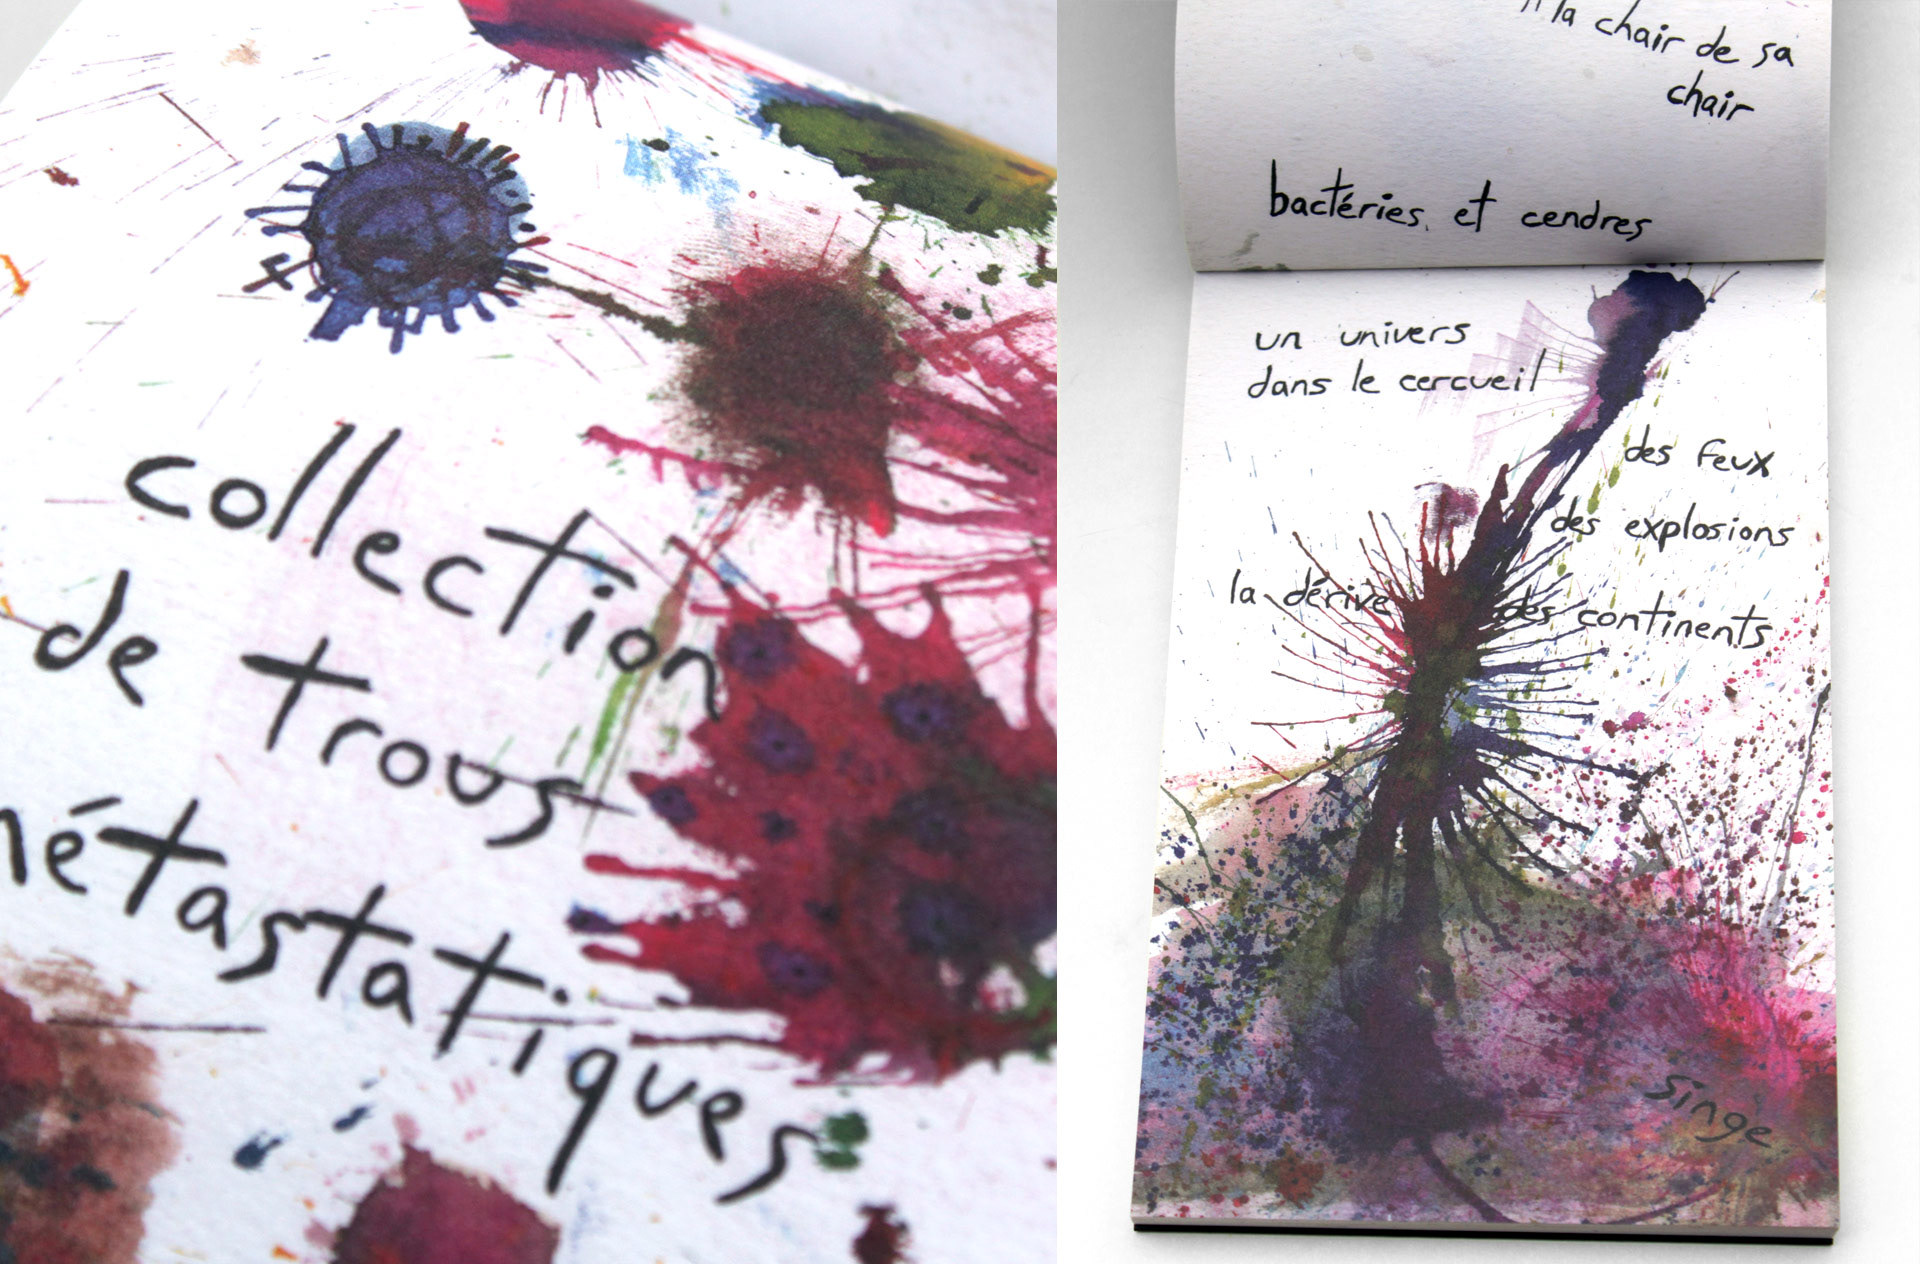 collection
de trous
métastatiques
la chair de sa
chair
bactéries et cendres
un univers
dans le cercueil
des feux
des explosions
la dérive des continents
singe